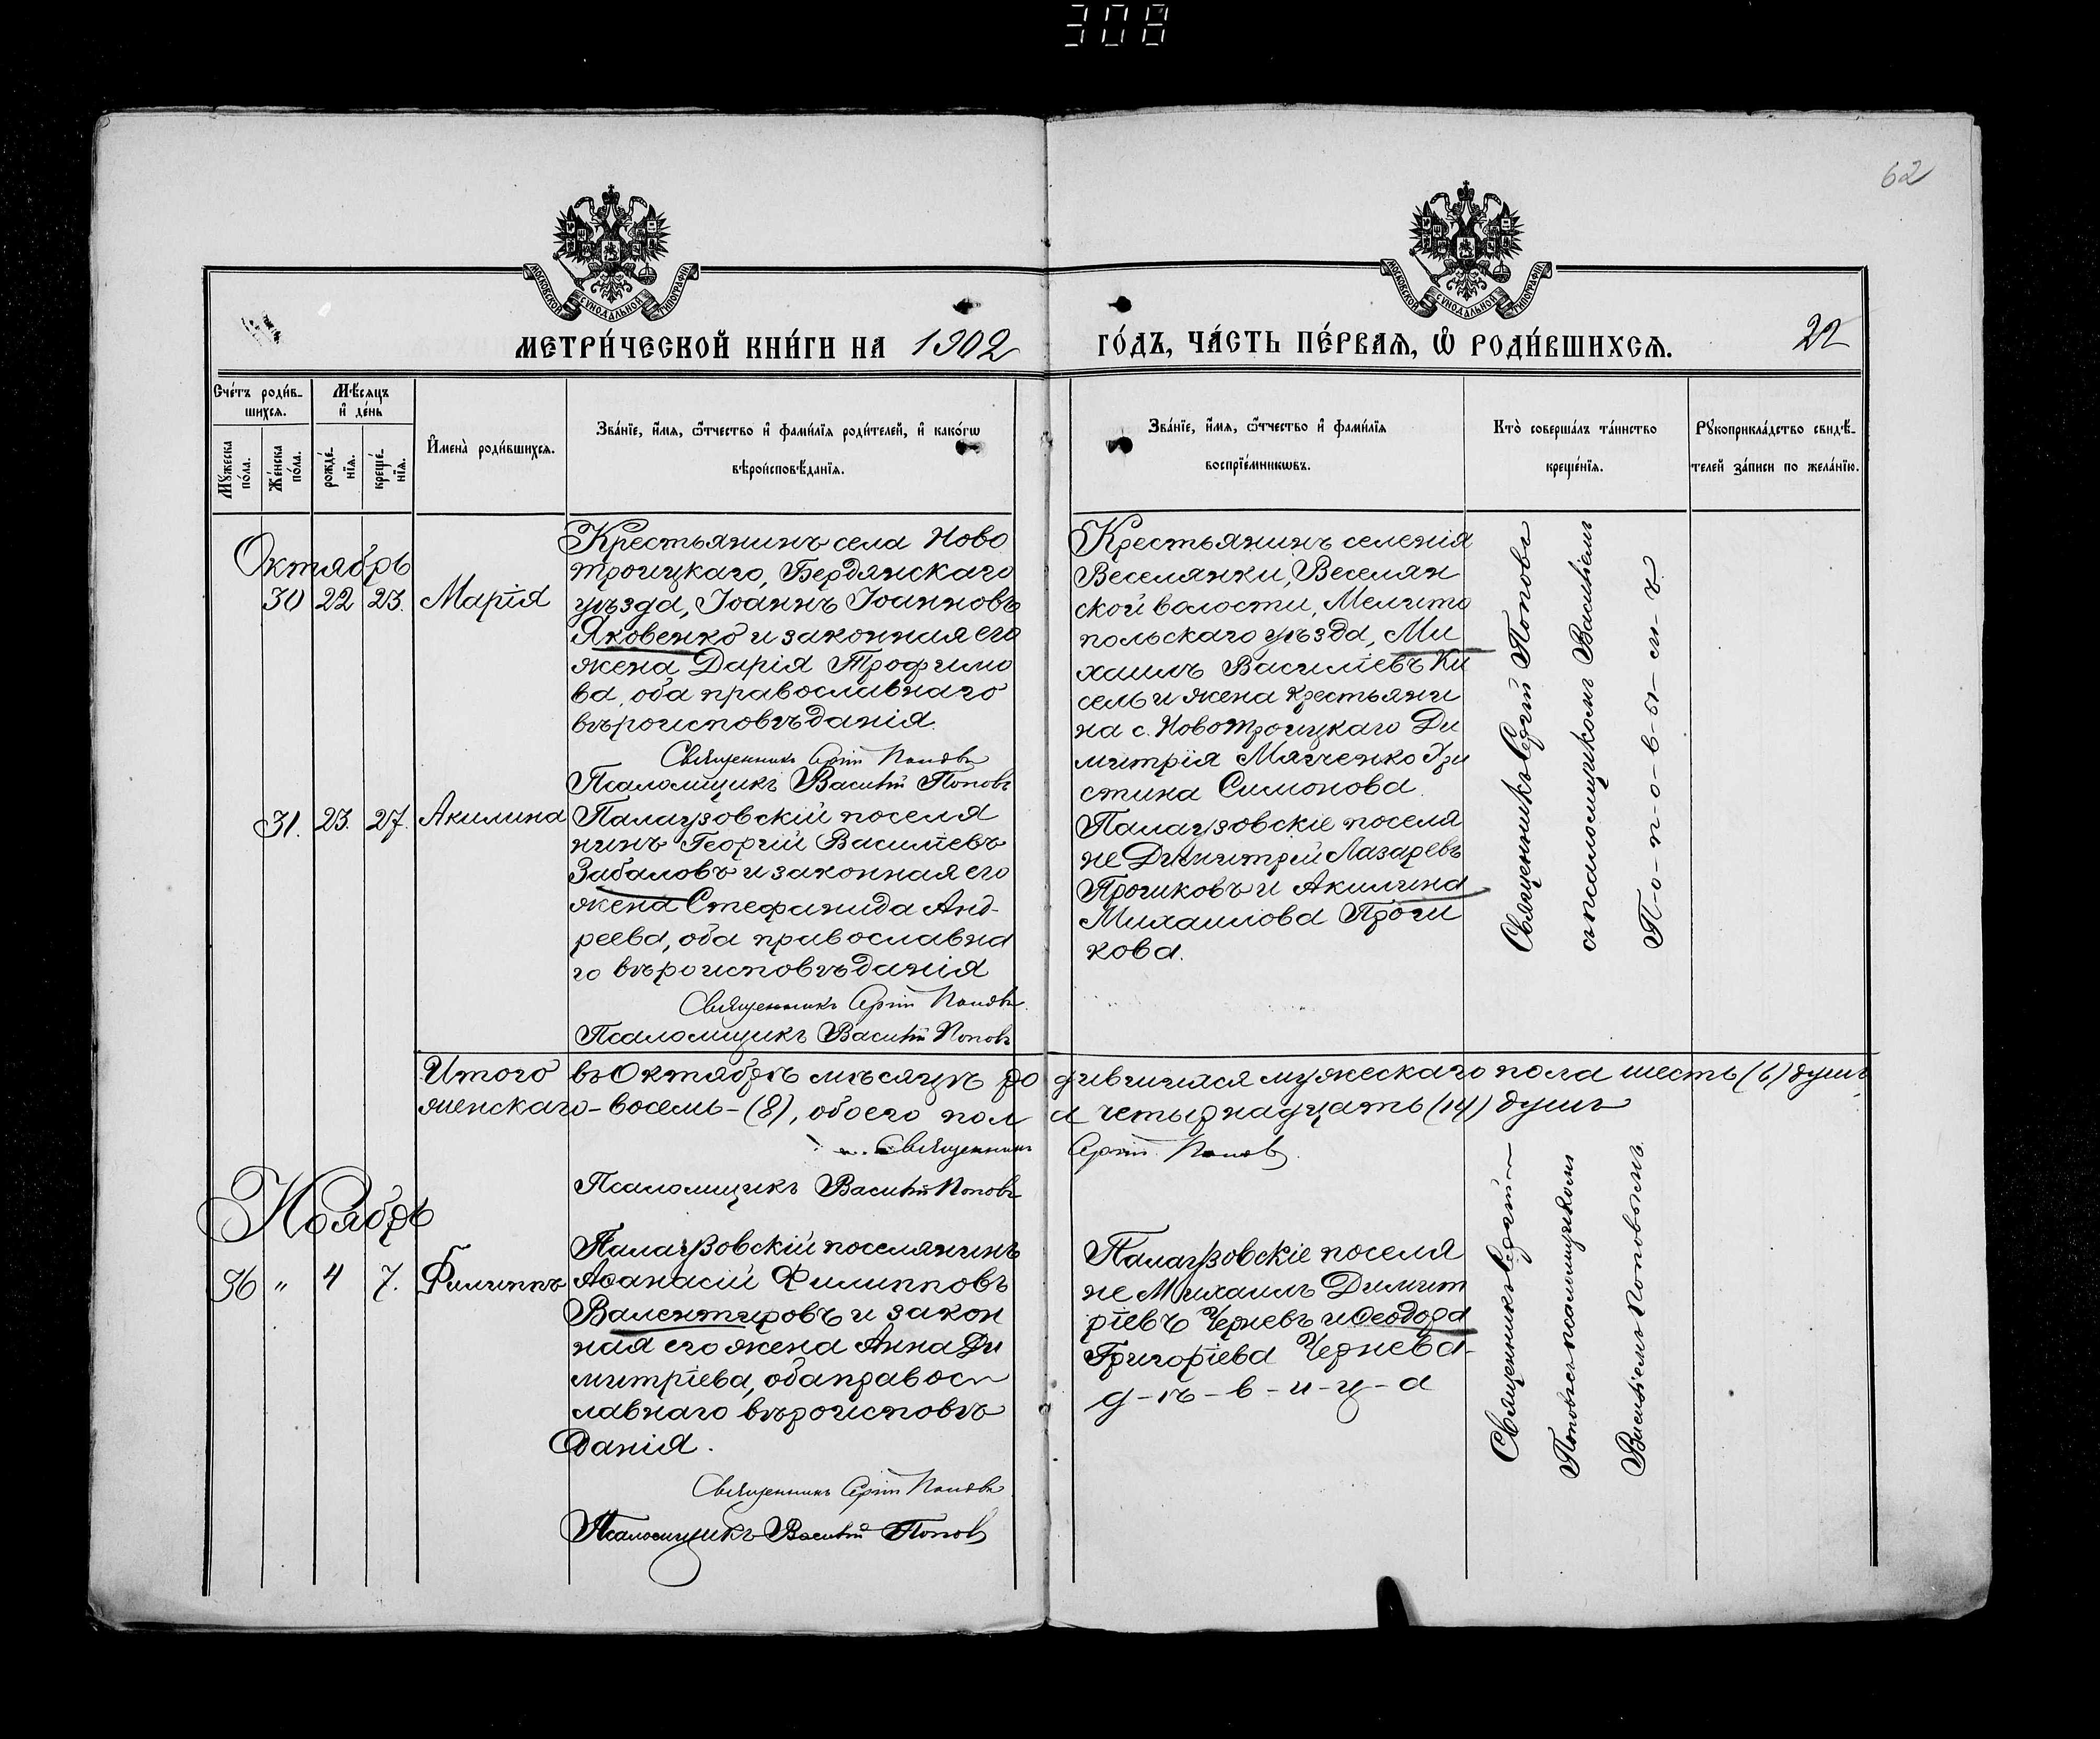 308
62
МОСКОВСКОЙ СѴНОДАЛЬНОЙ ТИПОГРАФІИ
МОСКОВСКОЙ СѴНОДАЛЬНОЙ ТИПОГРАФІИ
МЕТРИ́ЧЕСКОЙ КНИ́ГИ НА 1902
ГО́ДЪ, ЧА́СТЬ ПЕ́РВАѦ, Ѡ҆ РОДИ́ВШИХСѦ.
22
Счетъ роди́в-
шихсѧ.
Мѣ́сѧцъ
и҆ де́нь
Мꙋ́жеска
по́ла.
Же́нска
по́ла.
рожде́-
нїѧ.
креще́-
нїѧ.
И҆мена̀ роди́вшихсѧ.
Зва́нїе, и҆́мѧ, ѻ҆́тчество и҆ фами́лїѧ роди́телей, и҆ како́гѡ
вѣроисповѣ́данїѧ.
Зва́нїе, и҆́мѧ, ѻ҆́тчество и҆ фами́лїѧ
воспрїе́мникѡвъ.
Кто̀ соверша́лъ та́инство
креще́нїѧ.
Рꙋкоприкла́дство свидѣ́-
телей за́писи по жела́нїю.
Октябрь
30 22 23. Марія
Крестьянинъ села Ново
троицкаго, Бердянскаго
уѣзда, Іоаннъ Іоанновъ
Яковенко и законная его
жена Дарія Трофимо
ва, оба православнаго
вѣроисповѣданія.
Священникъ Сергій Поповъ
Псаломщикъ Василій Поповъ
Крестьянинъ селенія
Веселянки, Веселян
ской волости, Мелито
польскаго уѣзда, Ми
хаилъ Василіевъ Ки
сель и жена крестьяни
на с. Новотроицкаго Ди
митрія Мягченко Хри
стина Симонова.
Священникъ Сергій Поповъ
съ псаломщикомъ Василіемъ
П-о-п-о-в-ы-м-ъ.
31. 23. 27. Акилина
Палаузовскій поселя
нинъ Георгій Василіевъ
Забаловъ и законная его
жена Стефанида Анд-
реева, оба православна
го вѣроисповѣданія
Священникъ Сергій Поповъ.
Псаломщикъ Василій Поповъ
Палаузовскіе поселя
не Димитрій Лазаревъ
Прочиковъ и Акилина
Михаилова Прочи
кова.
Итого въ Октябрѣ мѣсяцѣ родившихся мужескаго пола шесть (6) душъ,
женскаго-восемь-(8), обоего пола четырнадцать (14) душъ
Священникъ Сергій Поповъ.
Псаломщикъ Василій Поповъ
Ноябрь
36 " 4 7. Филиппъ
Палаузовскій поселянинъ
Аѳанасій Филипповъ
Валентировъ и закон
ная его жена Анна Ди
митріева, оба правос
лавнаго вѣроисповѣ
данія.
Священникъ Сергій Поповъ
Псаломщикъ Василій Поповъ
Палаузовскіе поселя
не Михаилъ Димит
ріевъ Черневъ и Ѳеодора
Григоріева Чернева-
д-ѣ-в-и-ц-а
Священникъ Сергій
Поповъ съ псаломщикомъ
Василіемъ Поповымъ.